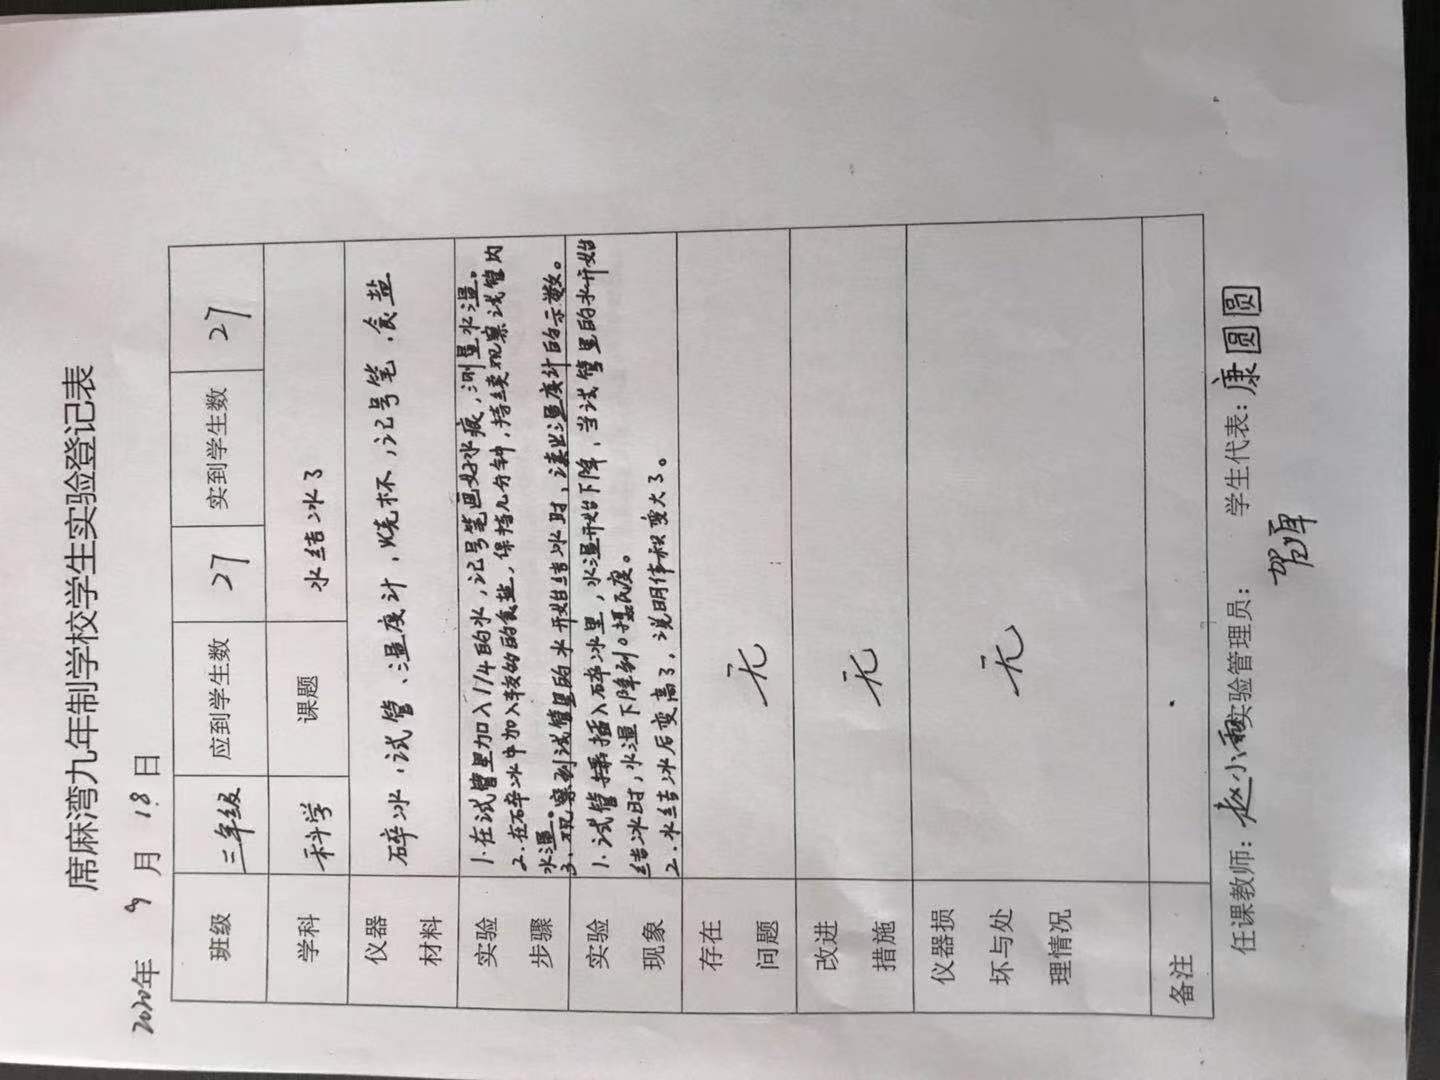 席麻湾九年制学校学生实验登记表
2020年 9 月 18 日
班级 三年级 应到学生数 27 实到学生数 27
学科 科学 课题 水结冰了
仪器材料 碎冰,试管、温度计,烧杯,记号笔,食盐
实验步骤 1.在试管里加入1/4的水,记号笔画好水痕,测量水温。
2.在碎冰中加入较多的食盐,保持几分钟,持续观察试管内
水温。
3.观察到试管里的水开始结冰时,读出温度计的示数。
实验现象 1.试管插入碎冰里,水温开始下降,当试管里的水开始
结冰时,水温下降到0摄氏度。
2.水结冰后变高了,说明体积变大了。
存在问题 无
改进措施 无
仪器损坏与处理情况 无
备注
任课教师: 赵小 实验管理员: 学生代表: 康圆圆